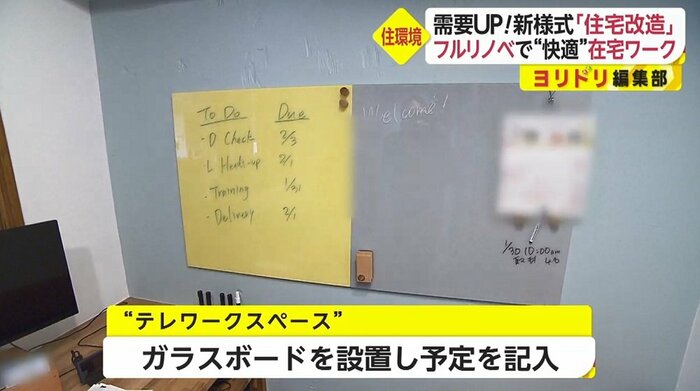 住環境
需要UP!新様式「住宅改造」
フルリノベで“快適”在宅ワーク
ヨリドリ編集部
To Do Due
- D Check 2/3
L Heads-up 2/1
- Training 1/31
- Delivery 2/1
Welcome!
1/30 10:00am
“テレワークスペース”
ガラスボードを設置し予定を記入